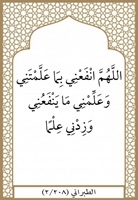 اللَّهُمَّ انْفَعْنِي بِمَا عَلَّمْتَنِي
وَعَلِّمْنِي مَا يَنْفَعُنِي
وَزِدْنِي عِلْمًا
الطبراني (٣/٢٠٨)